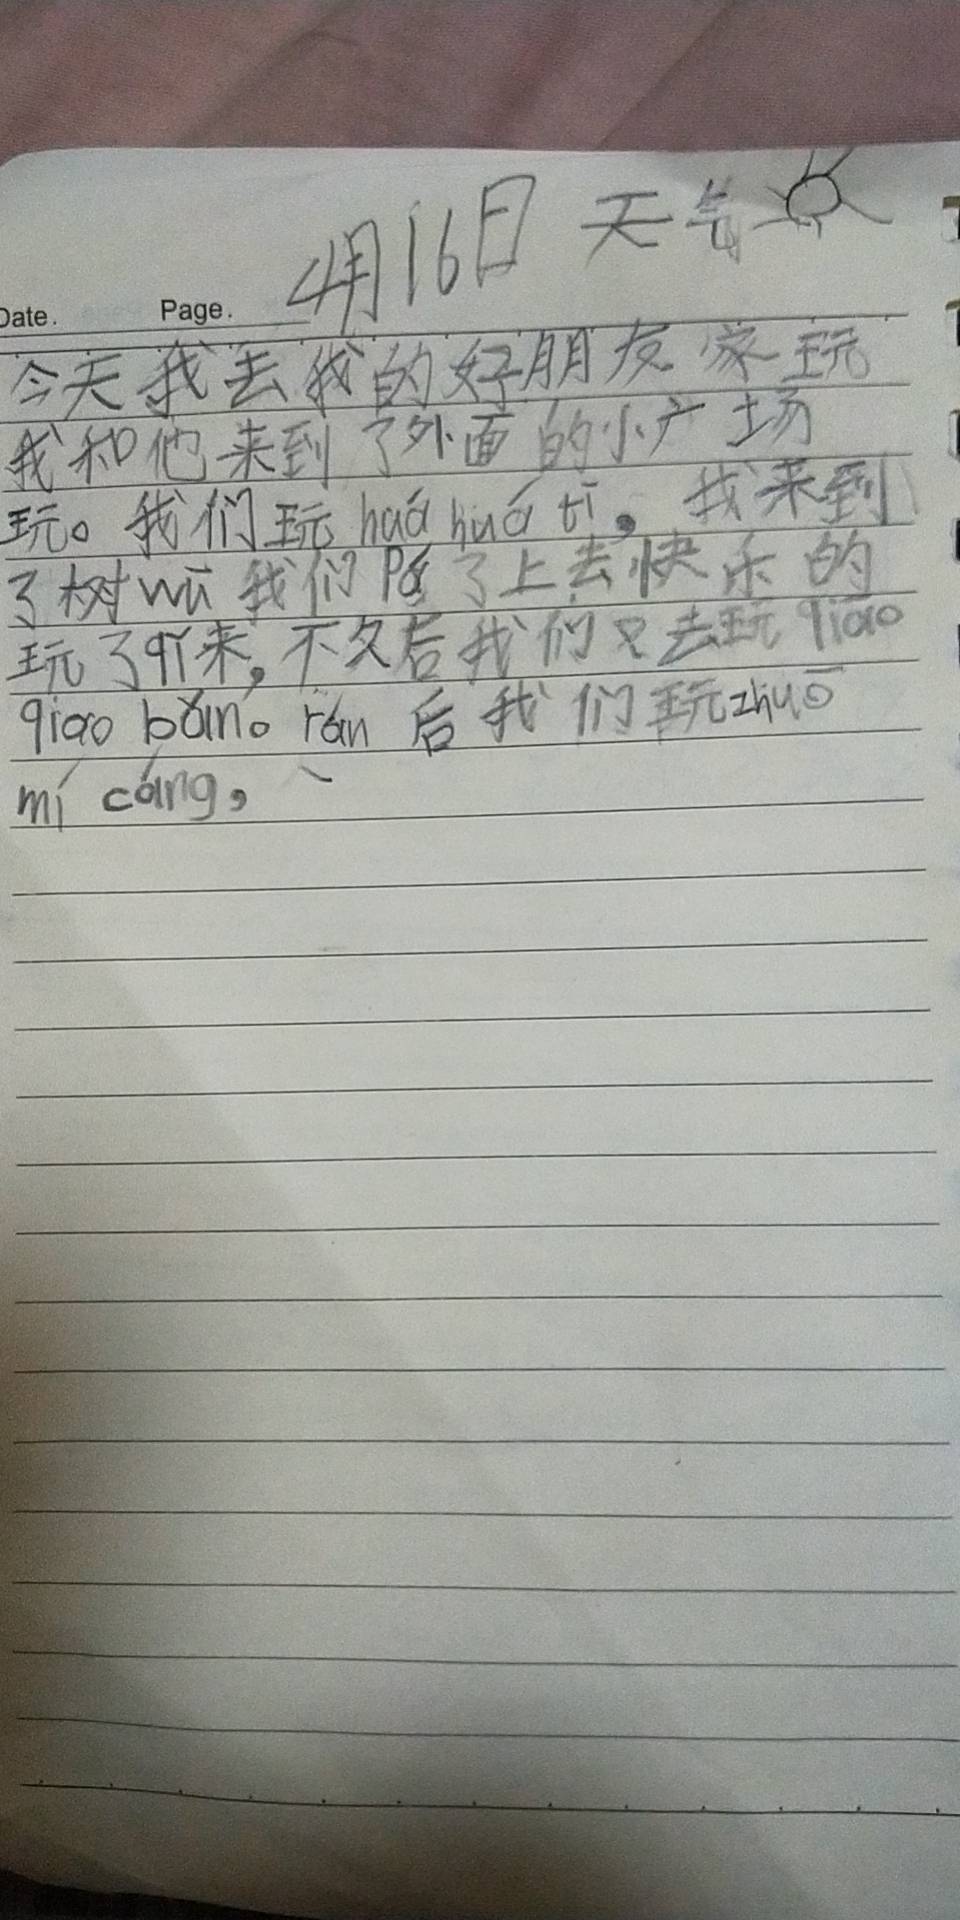 4月16日 天气
Date. Page.
今天我去我的好朋友家玩
我和他来到了外面的小广场
玩。我们玩 huá huá tī，我来到
了树wū我们pá了上去快乐的
玩了qǐ来，不久后我们又去玩 qiāo
qiao bǎn。rán 后我们玩zhuō
mí cáng，